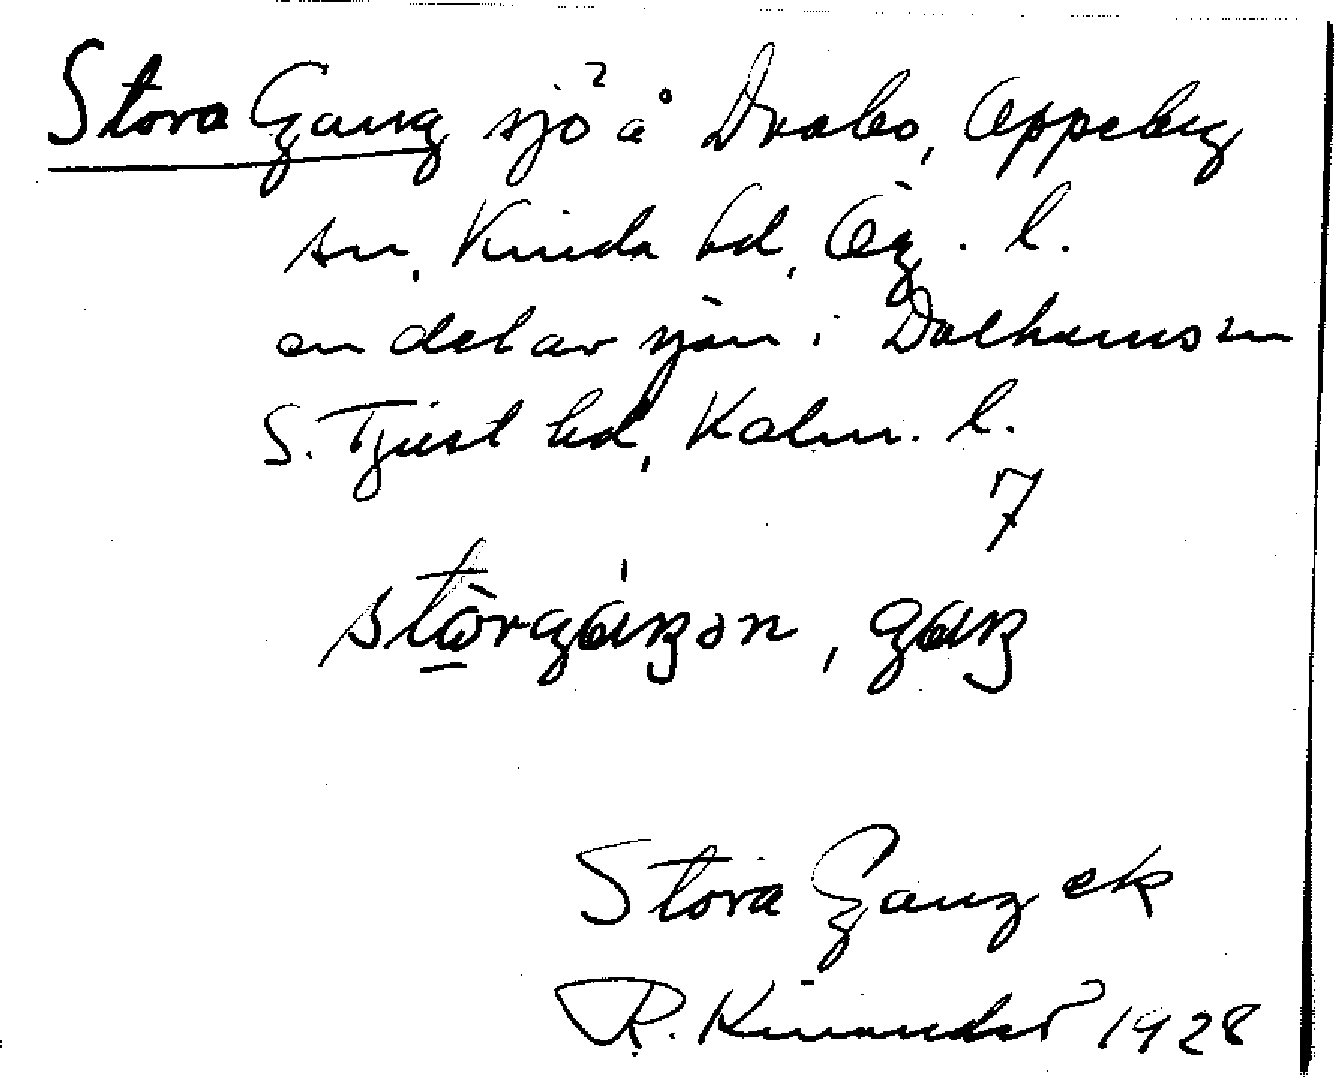 Stora Gang sjö å Drabo, Oppeby
sn, Kinda hd, Ög. l.
en del av sjön i Dalhems sn
S. Tjust hd, Kalm. l.
7
Stora Gang ek
R. Kinander 1928